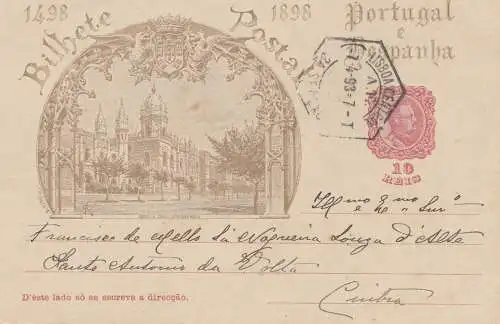 1498 1898
Bilhete Postal
Portugal
e
Hespanha
LISBOA CENTRAL
10
REIS
Ill.mo e Exmo Snr
Francisco de Mello Sá Nogueira Souza d'Alte
Santo Antonio da Volta
Coimbra
D'éste lado só se escreve a direcção.